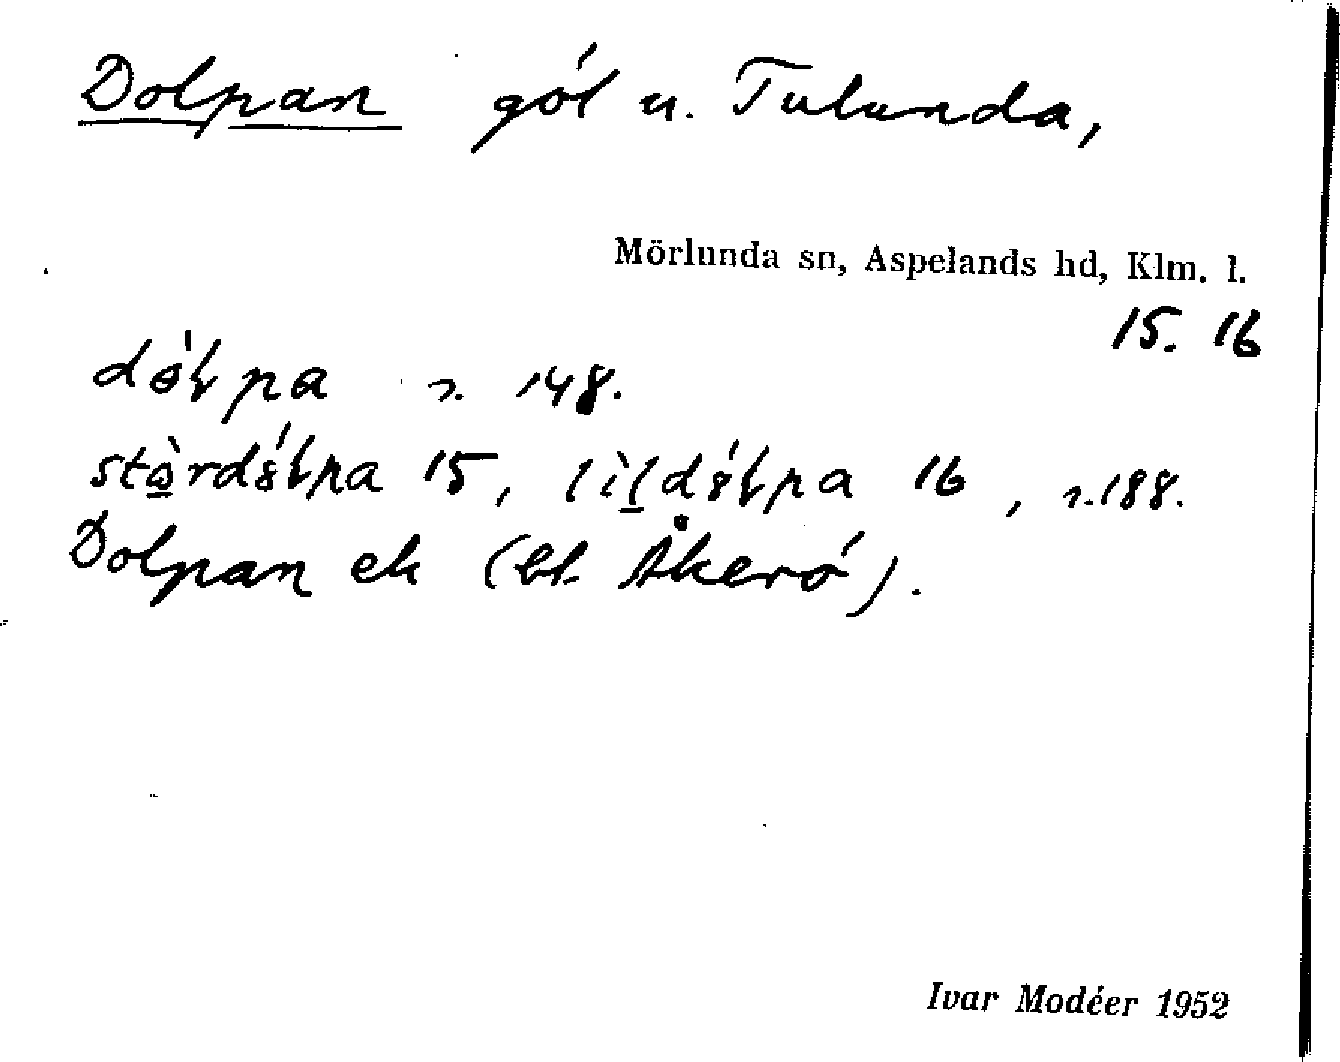 Dolpan göl u. Tulunda,
Mörlunda sn, Aspelands hd, Klm. l.
15. 16
148.
15, 16, s. 188.
Dolpan ek (bl. Åkerö).
Ivar Modéer 1952